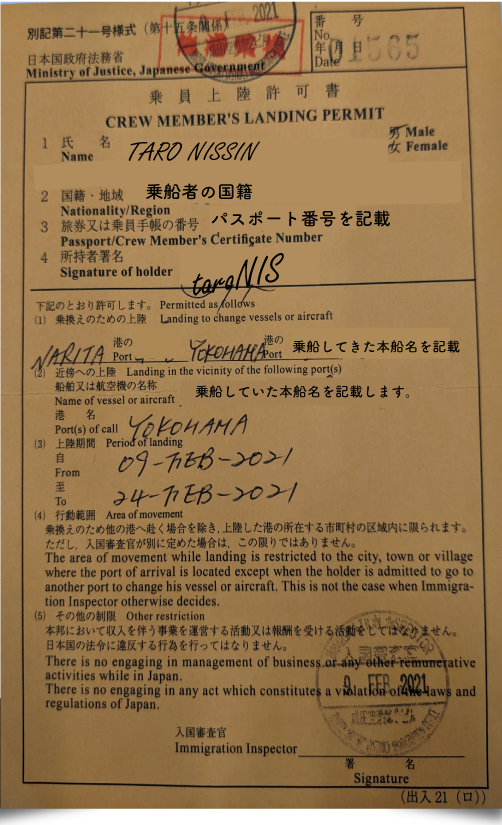 別記第二十一号様式(第十五条関係)
9 FEB 2021
日本国政府法務省
Ministry of Justice, Japanese Government
番 号
No.
年月日
Date
01565
乗員上陸許可書
CREW MEMBER'S LANDING PERMIT
1 氏 名
Name TARO NISSIN
男 Male
女 Female
2 国籍・地域 乗船者の国籍
Nationality/Region
3 旅券又は乗員手帳の番号 パスポート番号を記載
Passport/Crew Member's Certificate Number
4 所持者署名
Signature of holder
taroNIS
下記のとおり許可します。 Permitted as follows
(1) 乗換えのための上陸 Landing to change vessels or aircraft
NARITA 港の Port YOKOHAMA 港の Port 乗船してきた本船名を記載
(2) 近傍への上陸 Landing in the vicinity of the following port(s)
船舶又は航空機の名称
Name of vessel or aircraft 乗船していた本船名を記載します。
港 名
Port(s) of call YOKOHAMA
(3) 上陸期間 Period of landing
自
From 09-FEB-2021
至
To 24-FEB-2021
(4) 行動範囲 Area of movement
乗換えのため他の港へ赴く場合を除き、上陸した港の所在する市町村の区域内に限られます。
ただし、入国審査官が別に定めた場合は、この限りではありません。
The area of movement while landing is restricted to the city, town or village
where the port of arrival is located except when the holder is admitted to go to
another port to change his vessel or aircraft. This is not the case when Immigra-
tion Inspector otherwise decides.
(5) その他の制限 Other restriction
本邦において収入を伴う事業を運営する活動又は報酬を受ける活動をしてはなりません。
日本国の法令に違反する行為を行ってはなりません。
There is no engaging in management of business or any other remunerative
activities while in Japan.
There is no engaging in any act which constitutes a violation of the laws and
regulations of Japan.
入国審査官
9 FEB 2021
入国審査官
Immigration Inspector
署 名
Signature
(出入21(ロ))